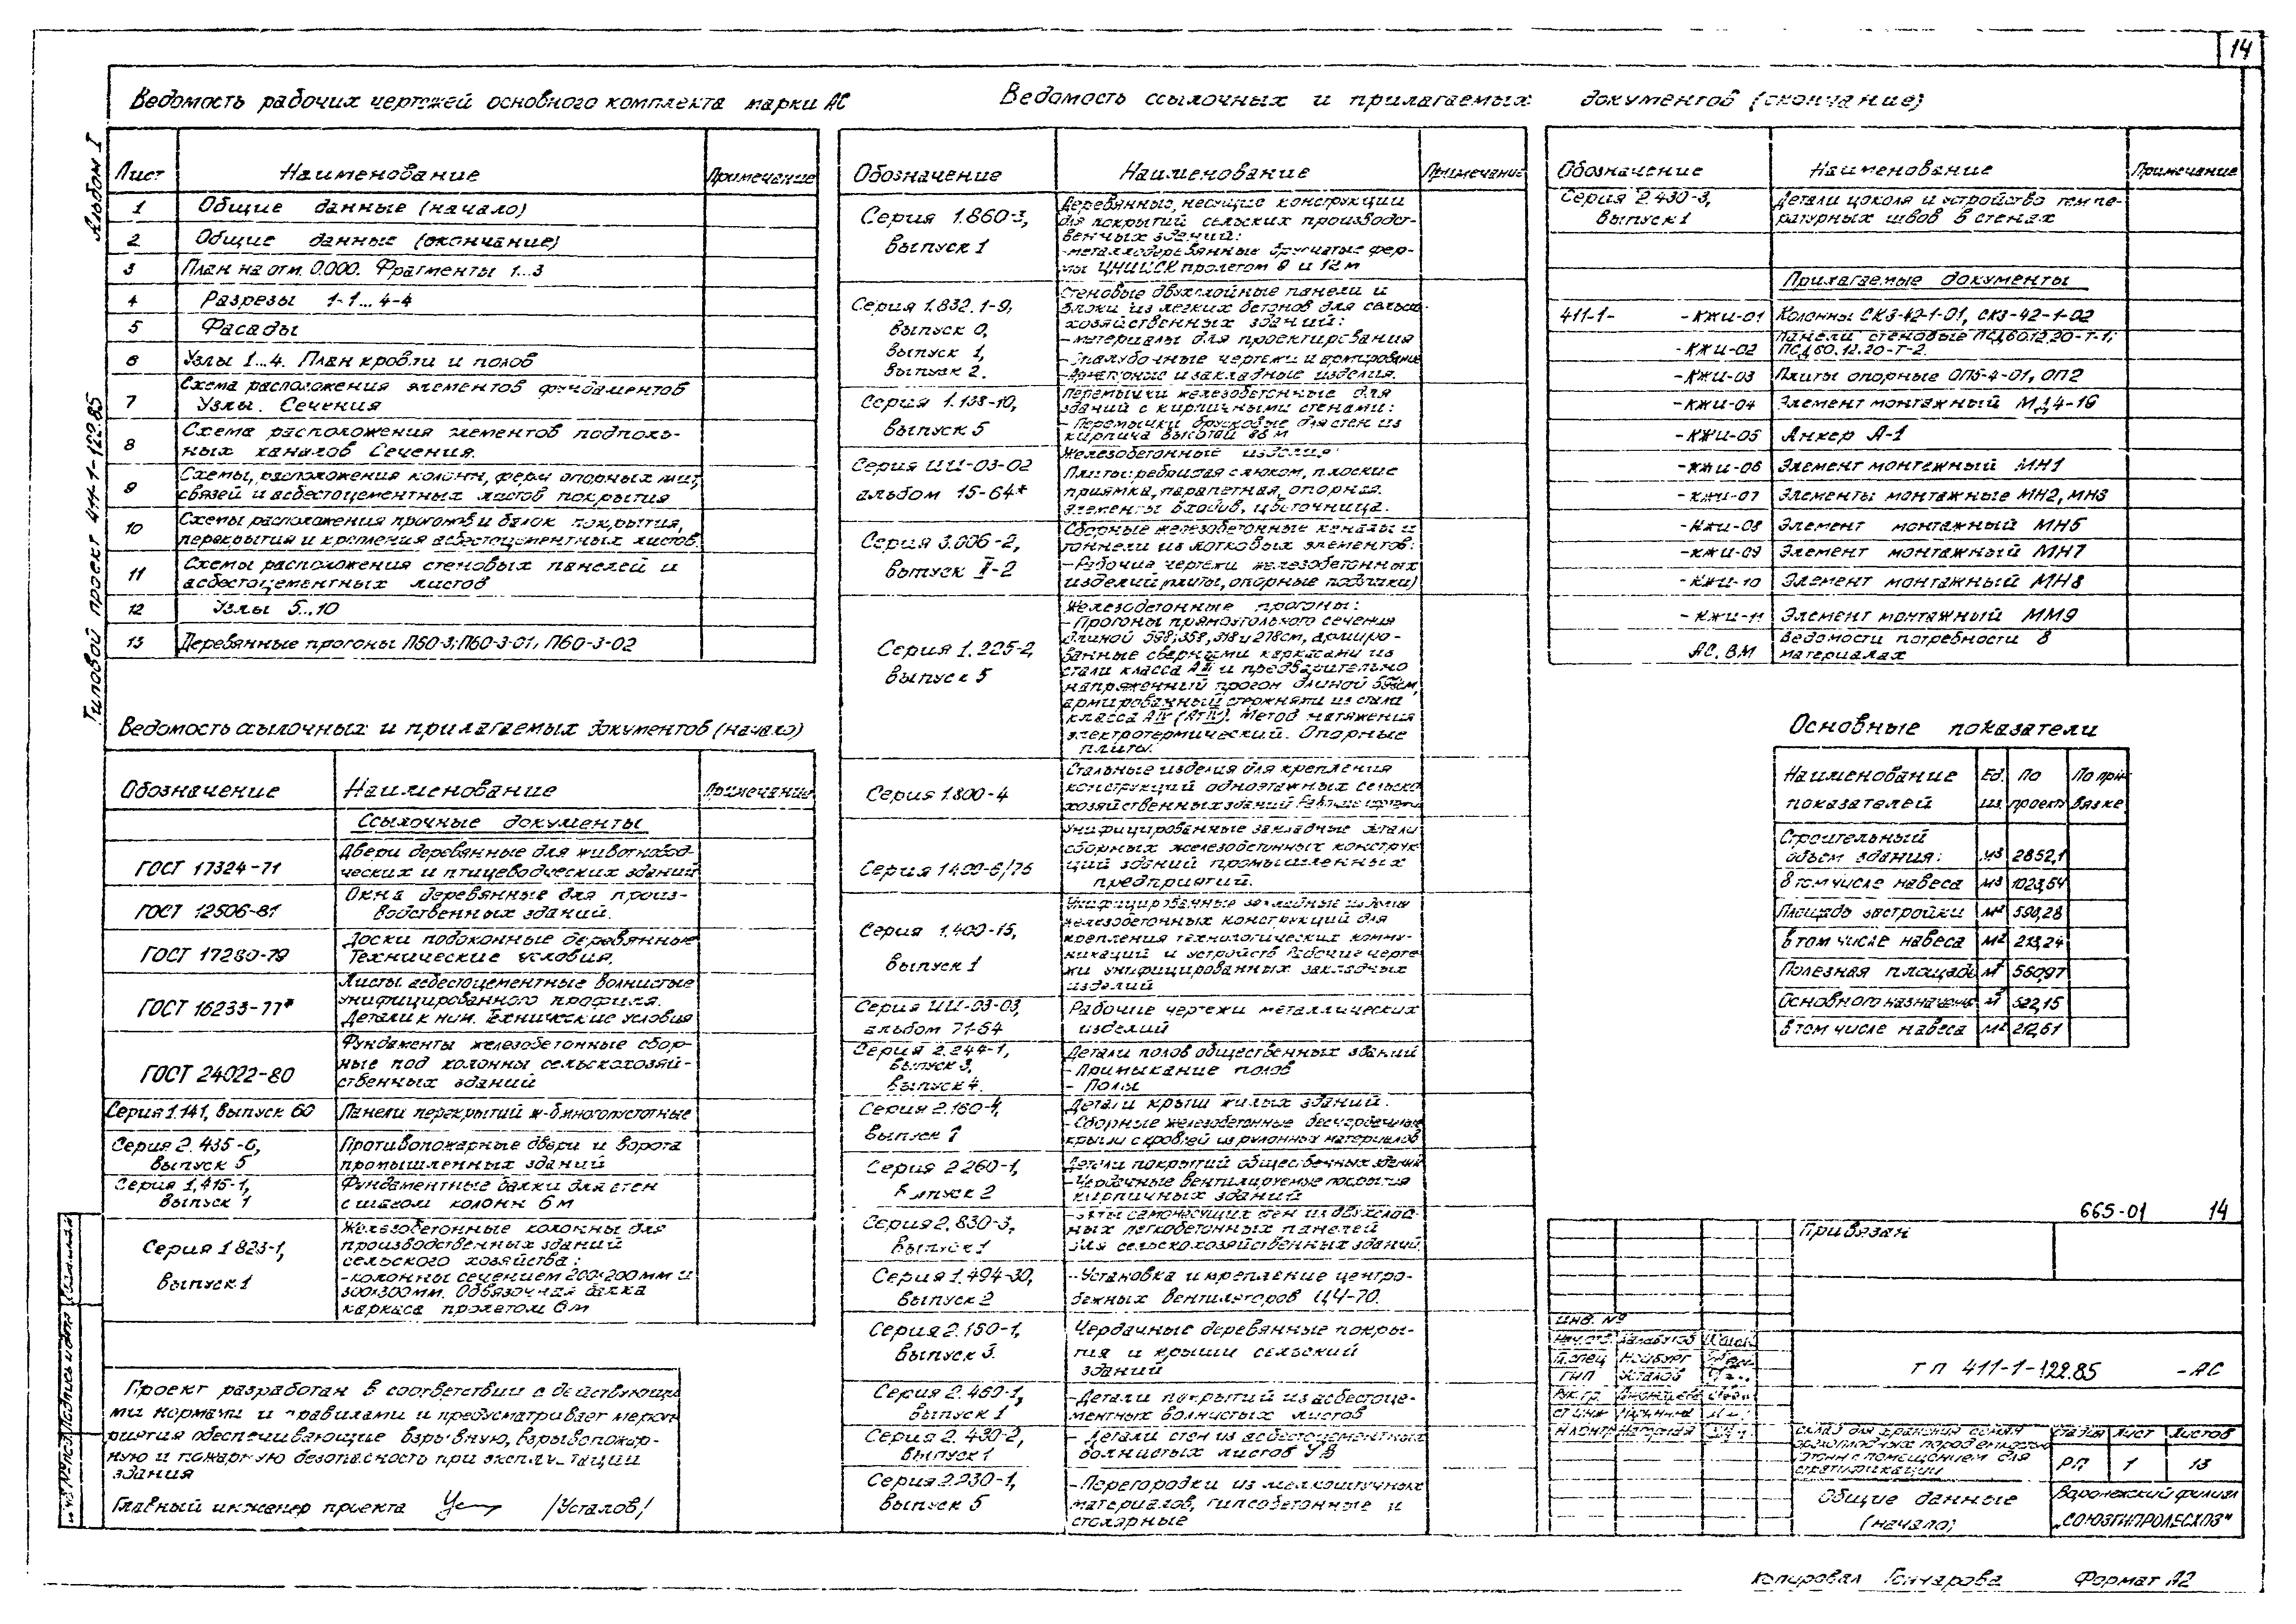 14
Альбом I
Типовой проект 411-1-122.85
Ведомость рабочих чертжей основного комплекта марки АС
Лист Наименование Примечание
1 Общие данные (начало)
2 Общие данные (окончание)
3 План на отм. 0.000. Фрагменты 1...3
4 Разрезы 1-1...4-4
5 Фасады
6 Узлы 1...4. План кровли и полов
7 Схема расположения элементов фундаментов
Узлы. Сечения
8 Схема расположения элементов подполь-
ных каналов Сечения.
9 Схемы, расположения колонн, ферм опорных плит,
связей и асбестоцементных листов покрытия
10 Схемы расположения прогонов и балок покрытия,
перекрытия и крепления асбестоцементных листов.
11 Схемы расположения стеновых панелей и
асбестоцементных листов
12 Узлы 5...10
13 Деревянные прогоны П60-3; П60-3-01, П60-3-02
Ведомость ссылочных и прилагаемых документов (начало)
Обозначение Наименование Примечание
Ссылочные документы
ГОСТ 17324-71 Двери деревянные для животновод-
ческих и птицеводческих зданий
ГОСТ 12506-81 Окна деревянные для произ-
водственных зданий.
ГОСТ 17280-79 Доски подоконные деревянные
Технические условия.
ГОСТ 16233-77* Листы асбестоцементные волнистые
унифицированного профиля.
Детали к ним. Технические условия
ГОСТ 24022-80 Фундаменты железобетонные сбор-
ные под колонны сельскохозяй-
ственных зданий
Серия 1.141, выпуск 60 Панели перекрытий ж-б многопустотные
Серия 2.435-6,
выпуск 5 Противопожарные двери и ворота
промышленных зданий
Серия 1.415-1,
выпуск 1 Фундаментные балки для стен
с шагом колонн 6м
Серия 1 823-1,
выпуск 1 Железобетонные колонны для
производственных зданий
сельского хозяйства:
-колонны сечением 200×200мм и
300×300мм. Обвязочная балка
каркаса пролетом 6м
Проект разработан в соответствии с действующи-
ми нормами и правилами и предусматривает мероп-
риятия обеспечивающие взрывную, взрывопожар-
ную и пожарную безопасность при эксплуатации
здания
Главный инженер проекта /Усталов/
Ведомость ссылочных и прилагаемых документов (окончание)
Обозначение Наименование Примечание
Серия 1.860-3,
выпуск 1 Деревянные, несущие конструкции
для покрытий сельских производст-
венных зданий:
-металлодеревянные брусчатые фер-
мы ЦНИИСК пролетом 9 и 12м
Серия 1.832.1-9,
выпуск 0,
выпуск 1,
выпуск 2. Стеновые двухслойные панели и
блоки из легких бетонов для сельско-
хозяйственных зданий:
-материалы для проектирования
-Опалубочные чертежи и армирование
-Арматурные и закладные изделия.
Серия 1.138-10,
выпуск 5 Перемычки железобетонные для
зданий с кирпичными стенами:
- Перемычки брусковые для стен из
кирпича высотой 88м
Серия ИИ-03-02
альбом 15-64* Железобетонные изделия
Плиты: ребристая с люком, плоские
приямка, парапетная, опорная.
Элементы входов, цветочница.
Серия 3.006-2,
выпуск II-2 Сборные железобетонные каналы и
тоннели из лотковых элементов:
-Рабочие чертежи железобетонных
изделий плиты, опорные подушки)
Серия 1.225-2,
выпуск 5 Железобетонные прогоны:
- Прогоны прямоугольного сечения
длиной 598; 358, 318 и 278см, армиро-
ванные сварными каркасами из
стали класса АIII и предварительно
напряженный прогон длиной 598см,
армированный стержнями из стали
класса АIV (АтIV). Метод натяжения
электротермический. Опорные
плиты.
Серия 1.800-4 Стальные изделия для крепления
конструкций одноэтажных сельско
хозяйственных зданий Рабочие чертежи
Серия 1400-6/76 Унифицированные закладные детали
сборных железобетонных конструк-
ций зданий промышленных
предприятий.
Серия 1.400-15,
выпуск 1 Унифицированные закладные изделия
железобетонных конструкций для
крепления технологических комму-
никаций и устройств Рабочие черте
жи унифицированных закладных
изделий
Серия ИИ-03-03,
альбом 71-64 Рабочие чертежи металлических
изделий
Серия 2.244-1,
выпуск 3,
выпуск 4. Детали полов общественных зданий
-Примыкание полов
- Полы
Серия 2.160-4,
выпуск 1 Детали крыш жилых зданий.
-Сборные железобетонные бесчердачные
крыши с кровлей из рулонных материалов
Серия 2 260-1,
выпуск 2 Детали покрытий общественных зданий
-Чердачные вентилируемые покрытия
кирпичных зданий
Серия 2.830-3,
выпуск 1 самонесущих стен из двухслой-
ных легкобетонных панелей
для сельскохозяйственных зданий.
Серия 1.494-30,
выпуск 2 -Установка и крепление центро-
бежных вентиляторов Ц4-70.
Серия 2.150-1,
выпуск 3. Чердачные деревянные покры-
тия и крыши сельский
зданий
Серия 2.460-1,
выпуск 1 -Детали покрытий из асбестоце-
ментных волнистых листов
Серия 2.430-2,
выпуск 1 - Детали стен из асбестоцементных
волнистых листов УВ
Серия 2.230-1,
выпуск 5 -Перегородки из мелкоштучных
материалов, гипсобетонные и
столярные
Обозначение Наименование Примечание
Серия 2.430-3,
выпуск 1 Детали цоколя и устройство темпе-
ратурных швов в стенах
Прилагаемые документы
411-1- -КЖИ-01 Колонны СК3-42-1-01, СК3-42-1-02
-КЖИ-02 Панели стеновые ПСД60.12.20-Т-1;
ПСД60.12.20-Т-2.
-КЖИ-03 Плиты опорные ОП5-4-01, ОП2
-КЖИ-04 Элемент монтажный МД4-16
-КЖИ-05 Анкер А-1
-КЖИ-06 Элемент монтажный МН1
-КЖИ-07 Элементы монтажные МН2, МН3
-КЖИ-08 Элемент монтажный МН5
-КЖИ-09 Элемент монтажный МН7
-КЖИ-10 Элемент монтажный МН8
-КЖИ-11 Элемент монтажный ММ9
АС. ВМ Ведомости потребности в
материалах
Основные показатели
Наименование показателей Ед. из. По проекту По привязке
Строительный
объем здания: м3 2852,1
в том числе навеса м3 1023,54
Площадь застройки м2 590,28
в том числе навеса м2 213,24
Полезная площадь м2 560,97
Основного назначения м2 522,15
в том числе навеса м2 212,61
665-01 14
Привязан
Инв. №
Нач. отд. Балабутов
Гл. спец Нейбург
ГИП Усталов
Рук. гр.
Ст. инж
Н. контр
ТП 411-1-122.85 -АС
Склад для хранения семян
с помещением для
стратификации
Стадия Лист Листов
РП 1 13
Общие данные
(начало)
Воронежский филиал
„СОЮЗГИПРОЛЕСХОЗ"
Копировал Гончарова Формат А2